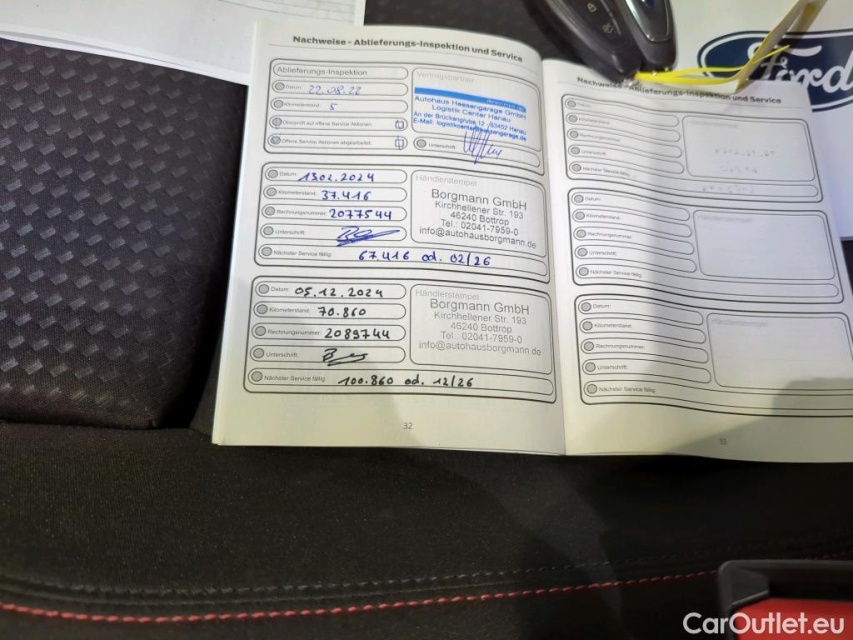 Nachweise - Ablieferungs-Inspektion und Service
Ablieferungs-Inspektion
Datum: 22.08.22
Kilometerstand: 5
Überprüft auf offene Service-Aktionen:
Offene Service-Aktionen abgearbeitet:
Vertragspartner
Autohaus Hessengarage GmbH
Logistik Center Hanau
An der Brückengrube 12, 63452 Hanau
Unterschrift:
Datum: 13.02.2024
Kilometerstand: 37.416
Rechnungsnummer: 2077544
Unterschrift:
Nächster Service fällig: 67.416 od. 02/26
Händlerstempel
Borgmann GmbH
Kirchhellener Str. 193
46240 Bottrop
Tel.: 02041-7959-0
info@autohausborgmann.de
Datum: 05.12.2024
Kilometerstand: 70.860
Rechnungsnummer: 2089744
Unterschrift:
Nächster Service fällig: 100.860 od. 12/26
Händlerstempel
Borgmann GmbH
Kirchhellener Str. 193
46240 Bottrop
Tel.: 02041-7959-0
info@autohausborgmann.de
32
Nachweise - Ablieferungs-Inspektion und Service
Datum:
Kilometerstand:
Rechnungsnummer:
Unterschrift:
Nächster Service fällig:
Datum:
Kilometerstand:
Rechnungsnummer:
Unterschrift:
Nächster Service fällig:
Datum:
Kilometerstand:
Rechnungsnummer:
Unterschrift:
Nächster Service fällig:
33
Ford
CarOutlet.eu